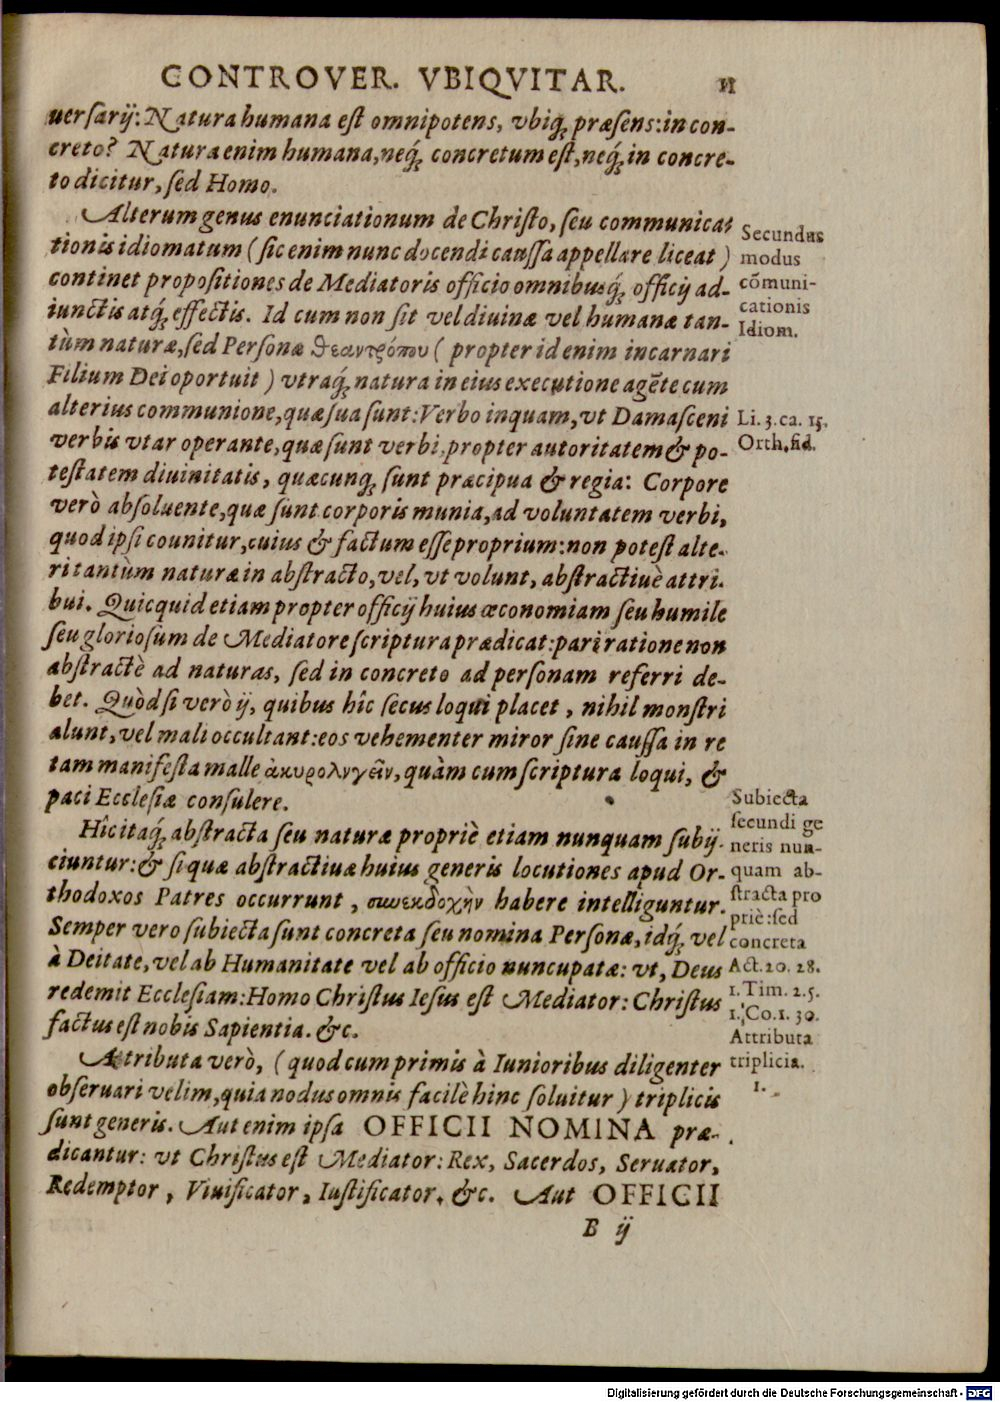 CONTROVER. VBIQVITAR. 11
uersarij: Natura humana est omnipotens, vbiq́; præsens: in con-
creto? Natura enim humana, neq́; concretum est, neq́; in concre-
to dicitur, sed Homo.
Alterum genus enunciationum de Christo, seu communica-
tionis idiomatum (sic enim nunc docendi caussa appellare liceat)
continet propositiones de Mediatoris officio omnibusq́; officij ad-
iunctis atq́; effectis. Id cum non sit vel diuinæ vel humanæ tan-
tùm naturæ, sed Personæ θεαντρόπου (propter id enim incarnari
Filium Dei oportuit) vtraq́; natura in eius executione agẽte cum
alterius communione, quæ sua sunt: Verbo inquam, vt Damasceni
verbis vtar operante, quæ sunt verbi, propter autoritatem & po-
testatem diuinitatis, quæcunq́; sunt præcipua & regia: Corpore
verò absoluente, quæ sunt corporis munia, ad voluntatem verbi,
quod ipsi counitur, cuius & factum esse proprium: non potest alte-
ri tantùm naturæ in abstracto, vel, vt volunt, abstractiuè attri-
bui. Quicquid etiam propter officij huius œconomiam seu humile
seu gloriosum de Mediatore scriptura prædicat: pari ratione non
abstractè ad naturas, sed in concreto ad personam referri de-
bet. Quòd si verò ij, quibus hîc secus loqui placet, nihil monstri
alunt, vel mali occultant: eos vehementer miror sine caussa in re
tam manifesta malle ἀκυρολνγεῖν, quàm cum scriptura loqui, &
paci Ecclesiæ consulere.
Hîc itaq́; abstracta seu naturæ propriè etiam nunquam subij-
ciuntur: & si quæ abstractiuæ huius generis locutiones apud Or-
thodoxos Patres occurrunt, συνεκδοχὴν habere intelliguntur.
Semper vero subiecta sunt concreta seu nomina Personæ, idq́; vel
à Deitate, vel ab Humanitate vel ab officio nuncupatæ: vt, Deus
redemit Ecclesiam: Homo Christus Iesus est Mediator: Christus
factus est nobis Sapientia. &c.
Attributa verò, (quod cum primis à Iunioribus diligenter
obseruari velim, quia nodus omnis facilè hinc soluitur) triplicis
sunt generis. Aut enim ipsa OFFICII NOMINA præ-
dicantur: vt Christus est Mediator: Rex, Sacerdos, Seruator,
Redemptor, Viuificator, Iustificator, &c. Aut OFFICII
B ij
Secundus
modus
cõmuni-
cationis
Idiom.
Li. 3. ca. 15.
Orth. fid.
Subiecta
secundi ge
neris nun-
quam ab-
stracta pro
priè: sed
concreta
Act. 20. 28.
1. Tim. 2. 5.
1. Co. 1. 30.
Attributa
triplicia.
1.
Digitalisierung gefördert durch die Deutsche Forschungsgemeinschaft - DFG